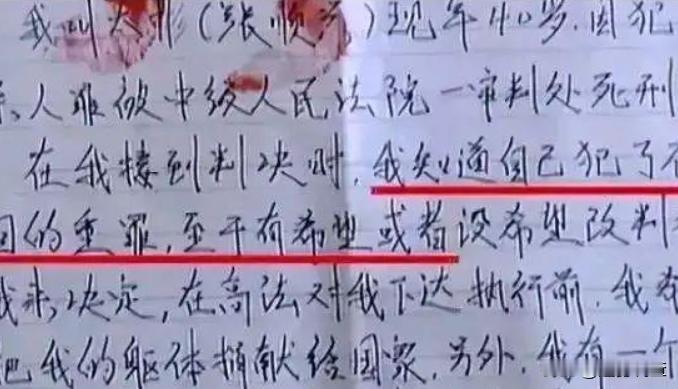 我叫大彬(张顺 )现年40岁.因犯
、人谁被中级人民法院一审判处死刑
在我接到判决时,我知道自己犯了
的重罪,至于有希望或者没希望改判
我来决定,在高法对我下达执行前,我希
把我的躯体捐献给国家.另外,我有一个